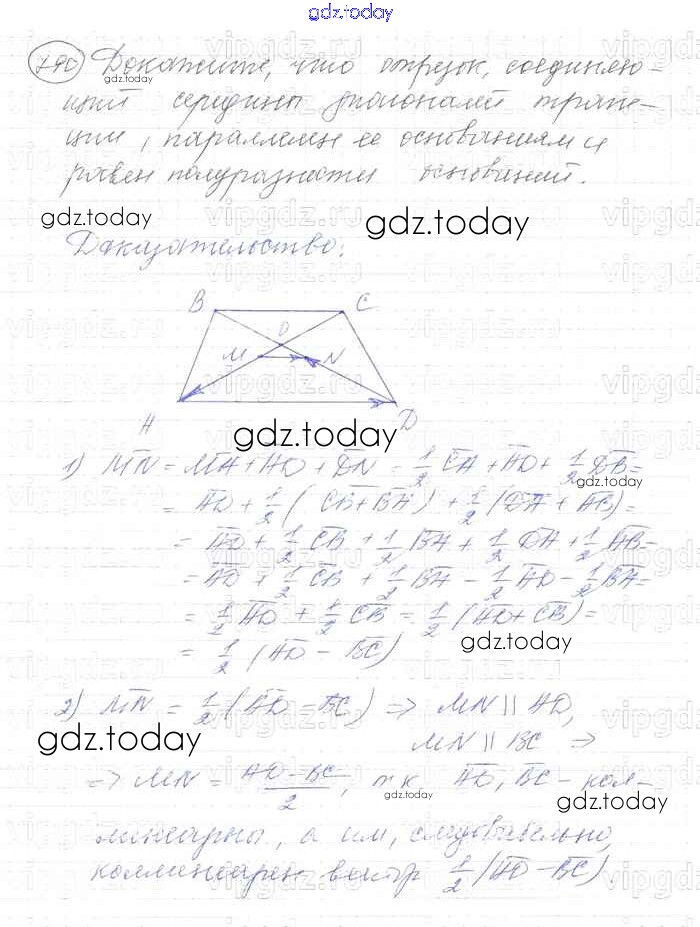 gdz.today
790 Докажите, что отрезок, соединяю-
щий середины диагоналей трапе-
ции, параллелен ее основаниям и
равен полуразности оснований.
gdz.today
gdz.today
gdz.today
Доказательство:
B C
O
M N
A D
gdz.today
1) MN = MA + AD + DN = 1/2 CA + AD + 1/2 DB =
= AD + 1/2 (CB + BA) + 1/2 (DA + AB) =
= AD + 1/2 CB + 1/2 BA + 1/2 DA + 1/2 AB =
= AD + 1/2 CB + 1/2 BA - 1/2 AD - 1/2 BA =
= 1/2 AD + 1/2 CB = 1/2 (AD + CB) =
= 1/2 (AD - BC)
gdz.today
2) MN = 1/2 (AD - BC) => MN || AD,
gdz.today
MN || BC =>
=> MN = AD - BC / 2, т.к. AD, BC - кол-
gdz.today
gdz.today
линеарны, а им, следовательно,
коллинеарен вектор 1/2 (AD - BC)